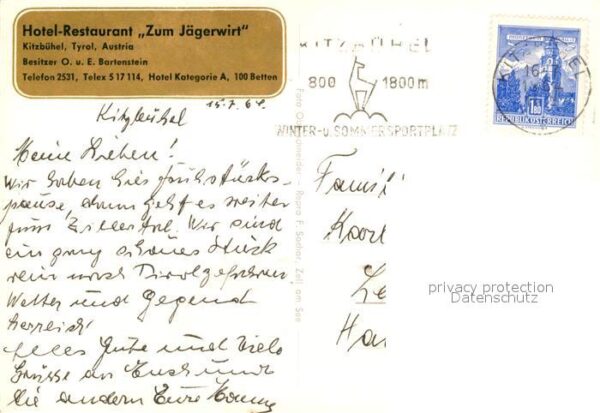 Hotel-Restaurant „Zum Jägerwirt"
Kitzbühel, Tyrol, Austria
Besitzer O. u. E. Bartenstein
Telefon 2531, Telex 5 17 114, Hotel Kategorie A, 100 Betten
KITZBÜHEL
800 1800 m
WINTER- u. SOMMERSPORTPLATZ
KITZBÜHEL
1.80
REPUBLIK ÖSTERREICH
Kitzbühel 15.7.64.
Meine Lieben!
Wir haben hier Frühstücks-
pause, dann geht es weiter
zum Zillertal. Wir sind
ein ganz schönes Stück
rein nach Tirol gefahren
Wetter und Gegend
herrlich!
Alles Gute und viele
Grüsse an Euch und
die andern Eure
Famil
Ha
privacy protection
Datenschutz
Repro F. Sochor, Zell am See